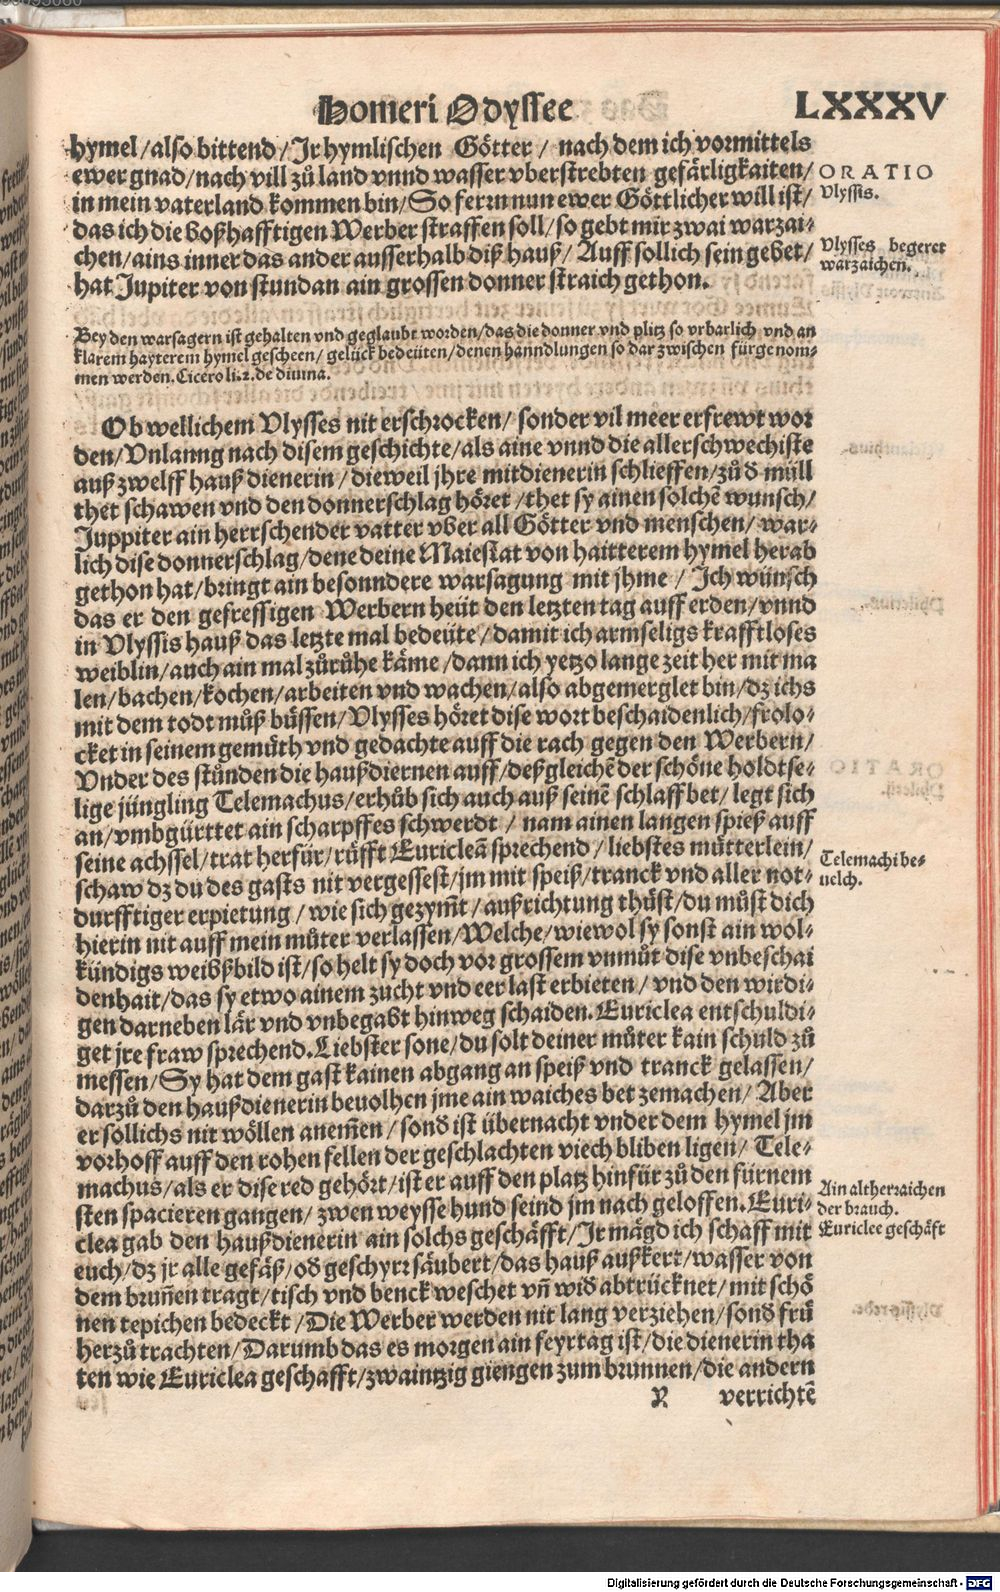 Homeri Odyssee LXXXV
hymel/also bittend/Jr hymlischen Götter/ nach dem ich vormittels
ewer gnad/nach vill zů land vnnd wasser vberstrebten gefärligkaiten/
in mein vaterland kommen bin/So fern nun ewer Göttlicher will ist/
das ich die boßhafftigen Werber straffen soll/so gebt mir zwai warzai-
chen/ains inner das ander ausserhalb diß hauß/ Auff sollich sein gebet/
hat Jupiter von stundan ain grossen donner straich gethon.
ORATIO
Vlyssis.
Vlysses begeret
warzaichen.
Bey den warsagern ist gehalten vnd geglaubt worden/das die donner vnd plitz so vrbarlich vnd an
klarem hayterem hymel gescheen/ gelück bedeüten/denen hanndlungen so dar zwischen fürgenom-
men werden. Cicero li.2.de diuina.
Ob wellichem Vlysses nit erschrocken/ sonder vil meer erfrewt wor
den/Vnlanng nach disem geschichte/als aine vnnd die allerschwechiste
auß zwelff hauß dienerin/dieweil jhre mitdienerin schlieffen/zů d̄ müll
thet schawen vnd den donnerschlag höret/thet sy ainen solchē wunsch/
Juppiter ain herrschender vatter vber all Götter vnd menschen/ war-
lich dise donnerschlag/dene deine Maiestat von haitterem hymel herab
gethon hat/bringt ain besonndere warsagung mit jhme/ Jch wünsch
das er den gefressigen Werbern heüt den letzten tag auff erden/vnnd
in Vlyssis hauß das letzte mal bedeüte/damit ich armseligs krafftloses
weiblin/auch ain mal zůrůhe käme/dann ich yetzo lange zeit her mit ma
len/bachen/kochen/arbeiten vnd wachen/also abgemerglet bin/dz ichs
mit dem todt můß büssen/Vlysses höret dise wort beschaidenlich/frolo-
cket in seinem gemüth vnd gedachte auff die rach gegen den Werbern/
Vnder des stůnden die haußdiernen auff/deßgleichē der schöne holdtse-
lige jüngling Telemachus/erhůb sich auch auß seinē schlaffbet/legt sich
an/vmbgürttet ain scharpffes schwerdt/ nam ainen langen spieß auff
seine achssel/trat herfür/růfft Euricleā sprechend/liebstes mütterlein/
schaw dz du des gasts nit vergessest/jm mit speiß/tranck vnd aller not-
durfftiger erpietung/wie sich gezym̄t/außrichtung thůst/du můst dich
hierin nit auff mein můter verlassen/Welche/wiewol sy sonst ain wol-
kündigs weibßbild ist/so helt sy doch vor grossem vnmůt dise vnbeschai
denhait/das sy etwo ainem zucht vnd eer last erbieten/ vnd den wirdi-
gen darneben lär vnd vnbegabt hinweg schaiden. Euriclea entschuldi-
get jre fraw sprechend. Liebster sone/du solt deiner můter kain schuld zů
messen/Sy hat dem gast kainen abgang an speiß vnd tranck gelassen/
darzů den haußdienerin beuolhen jme ain waiches bet zemachen/ Aber
er sollichs nit wöllen anem̄en/sond̄ ist übernacht vnder dem hymel jm
vorhoff auff den rohen fellen der geschlachten viech bliben ligen/ Tele-
machus/als er dise red gehört/ist er auff den platz hinfür zů den fürnem
sten spacieren gangen/zwen weysse hund seind jm nach geloffen. Euri-
clea gab den haußdienerin ain solchs geschäfft/Jr mägd ich schaff mit
euch/dz jr alle gefäß/od̄ geschyrr säubert/das hauß außkert/wasser von
dem brun̄en tragt/tisch vnd benck weschet vn̄ wid̄ abtrücknet/mit schö
nen tepichen bedeckt/Die Werber werden nit lang verziehen/sond̄ frü
herzů trachten/Darumb das es morgen ain feyrtag ist/die dienerin tha
ten wie Euriclea geschafft/zwaintzig giengen zum brunnen/die andern
Telemachi be-
uelch.
Ain altherraichen
der brauch.
Euriclee geschäft
verrichtē
Digitalisierung gefördert durch die Deutsche Forschungsgemeinschaft - DFG